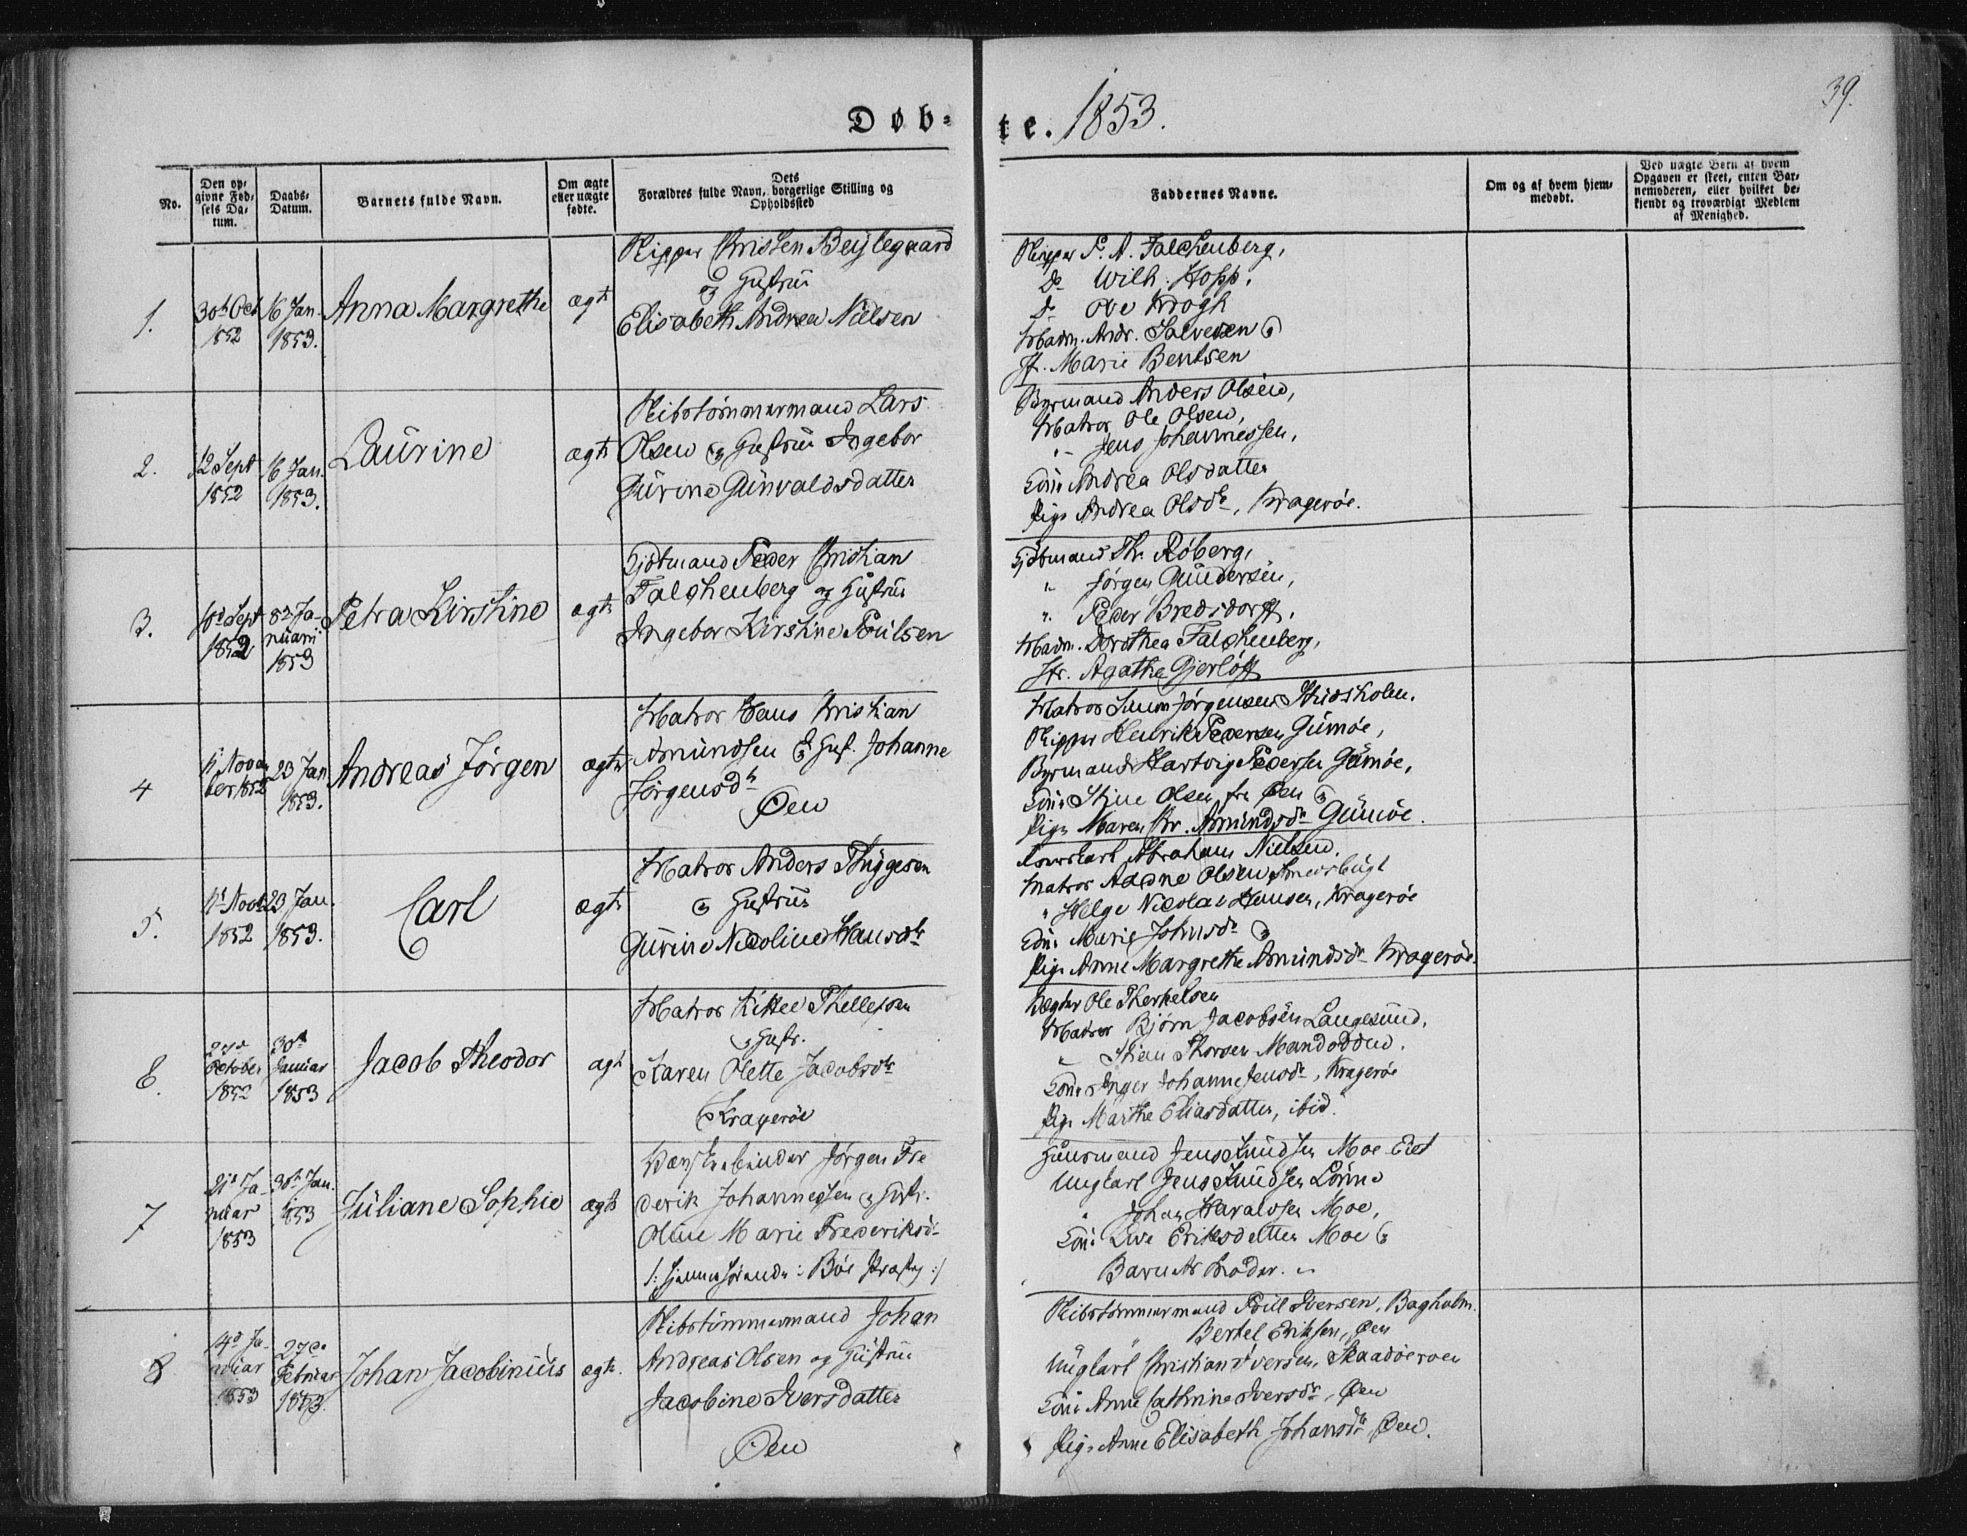 39.
Døb-te. 1853.
No.
Den op-
givne Fød-
sels Da-
tum.
Daabs-
Datum.
Barnets fulde Navn.
Om ægte
eller uægte
fødte.
Dets
Forældres fulde Navn, borgerlige Stilling og
Opholdssted
Faddernes Navne.
Om og af hvem hjem-
medøbt.
Ved uægte Børn af hvem
Opgaven er skeet, enten Bar-
nemoderen, eller hvilket be-
kjendt og troværdigt Medlem
af Menighed.
1.
30th Oct
1852
16 Jan.
1853.
Anna Margrethe
ægte
Skipper Christen Beylegaard
og Hustrue
Elisabeth Andrea Nielsen
Skipper P. A. Falchenberg,
Do Wilh. Hopp,
Do Ove Krogh
Madm. Andr. Salvesen og
Jfr. Marie Bentsen
2.
12 Sept
1852
16 Jan.
1853.
Laurine
ægte
Skibstømmermand Lars
Olsen og Hustrue Ingebor
Gurine Gunvaldsdatter
Byrmand Anders Olsen,
Matros Ole Olsen,
Jens Johannessen,
Kone Andrea Olsdatter
Pige Andrea Olsdr, Kragerøe.
3.
Sept
1852
8de Ja-
nuari
1853
Petra Kirstine
ægte
Peder Christian
Falchenberg og Hustrue
Ingebor Kirstine Poulsen
Th. Røberg,
" Jørgen Gundersen,
" Peder Bredsdorff,
Madm. Dorothea Falchenberg,
Jfr. Agathe Gjerløff
4
Novem
ber 1852
23 Jan
1853.
Andreas Jørgen
ægte
Matros Hans Christian
Amundsen og Hust. Johanne
Jørgensdr
Øen
Matros Simon Jørgensen
Skipper Henrik Pedersen Gumøe,
Byrmand Hartvig Pedersen Gumøe,
Kone Stine Olsen fra Øen og
Pige Maren Chr. Amundsdr Gumøe.
5.
Novbr
1852
23 Jan.
1853.
Carl
ægte
Matros Anders Thygesen
og Hustrue
Gurine Nicoline Hansdr
Abraham Nielsen,
Matros Aadne Olsen Smedsbugt
" Helge Nicolai Hansen, Kragerøe
Kone Marie Johnsdr og
Pige Anne Margrethe Amundsdr Kragerøe.
6.
October
1852
30th
Januar
1853
Jacob Theodor
ægte
Matros Kittel Thellefsen
og Hustr.
Karen Olette Jacobsdr
Kragerøe
Ole Therkelsen
Matros Bjørn Jacobsen Langesund,
Stian Thorsen
Kone Inger Johanne Jensdr, Kragerøe
Pige Marthe Eliasdatter, ibid.
7
21de Ja-
nuar
1853
30th Jan.
1853
Juliane Sophie
ægte
Jørgen Fre
derik Johannesen og Hustr.
Oline Marie Frederiksd.
Huusmand Jens Knudsen Moe Eiet
Ungkarl Jens Knudsen
Johan Haraldsen Moe,
Kone Live Eriksdatter Moe og
Barnets Moder.
8
14de Ja-
nuar
1853
27de
Februar
1853.
Johan Jacobinius
ægte.
Skibstømmermand Johan
Andreas Olsen og Hustrue
Jacobine Iversdatter
Øen
Skibstømmermand Poul Iversen, Bagholm.
" Bertel Eriksen, Øen
Ungkarl Christian Iversen, Skaadøeroen
Kone Anne Cathrine Iversdr, Øen
Pige Anne Elisabeth Johansdr Øen.